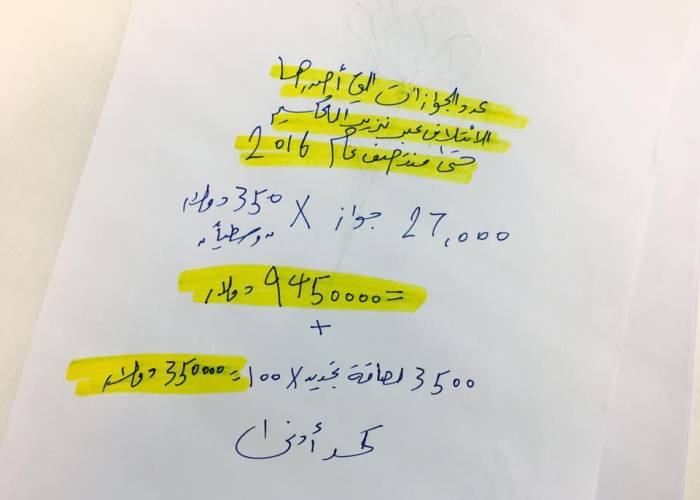 عدد الجوازات التي أصدرها
الائتلاف عبر نزير الحكسيم
حتى منتصف عام 2016
27,000 جواز X 350 دولار
"وسطياً"
= 9450000 دولار
+
3500 لصاقة تجديد X 100 = 350000 دولار
كحد أدنى